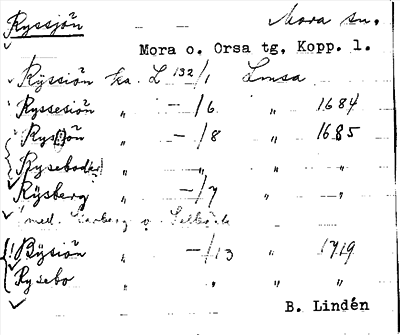 Ryssjön Mora sn.
Mora o. Orsa tg, Kopp. l.
Rÿssiön ka. L 132/1 Lmsa
Ryssesiön " -/6 " 1684
Rysjön " -/8 " 1685
Rysebodar " " " "
Rÿsberg " -/7 " "
med
! Bÿsiön " -/13 " 1719
Rysebo " " " "
B. Lindén